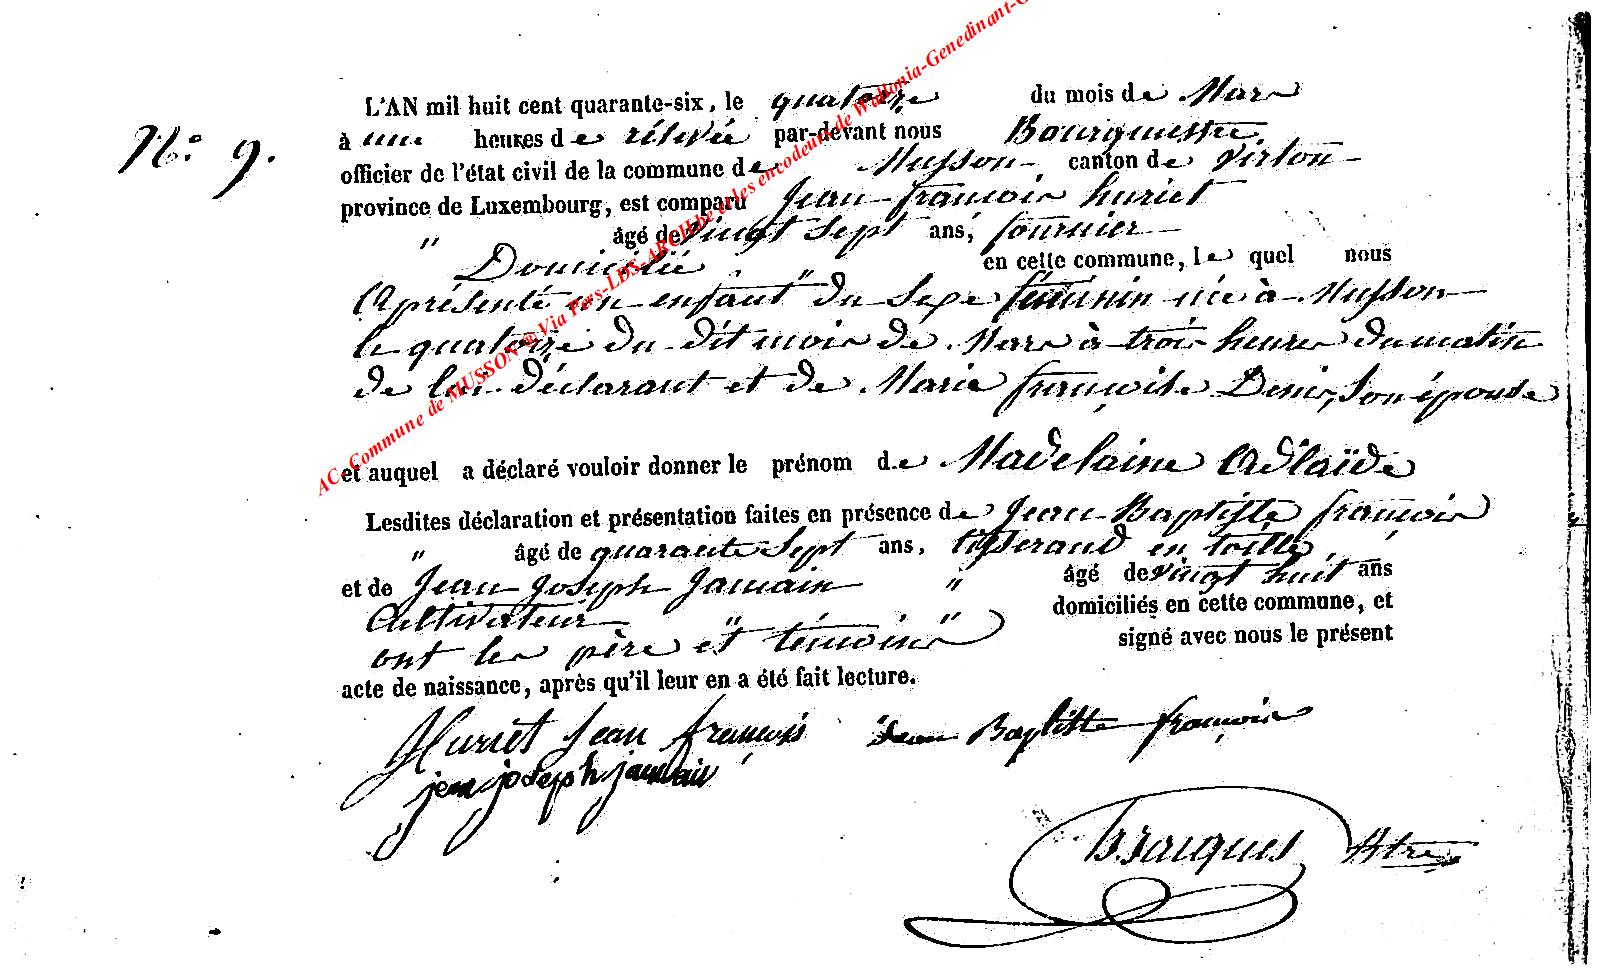 AC-Commune de MUSSON @ Via Pers-LDS-ARCH.be et les encodeurs de Wallonia-Genedinant-G
L'AN mil huit cent quarante-six, le quatorze du mois de Mars
N.o 9.
à une heures de rélevée par-devant nous Bourguemestre
officier de l'état civil de la commune de Musson canton de Virton
province de Luxembourg, est comparu Jean françois huriet
" âgé de vingt sept ans, fournier
Domicilié " en cette commune, le quel nous
a présenté un enfant du sexe féminin née à Musson
le quatorze du dit mois de Mars à trois heures du matin
de lui déclarant et de Marie françoise Denis, son épouse
et auquel a déclaré vouloir donner le prénom de Madelaine Adlaïde
Lesdites déclaration et présentation faites en présence de Jean Baptiste françois
" âgé de quarante sept ans, tisserand en toille,
et de Jean Joseph Jamain " âgé de vingt huit ans
Cultivateur " " domiciliés en cette commune, et
ont les père et témoins signé avec nous le présent
acte de naissance, après qu'il leur en a été fait lecture.
Huriet Jean françois Jean Baptiste françois
jean joseph jamain
Jacques Btre